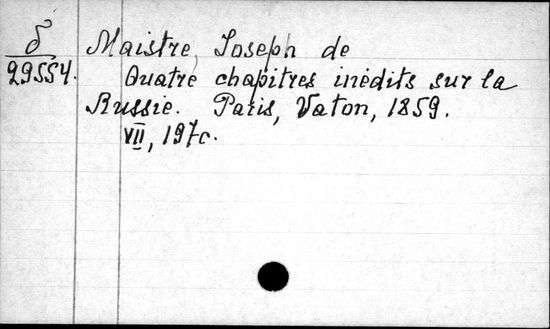 δ
29554.
Maistre, Joseph de
Quatre chapitres inédits sur la
Russie. Paris, Vaton, 1859.
VII, 197c.